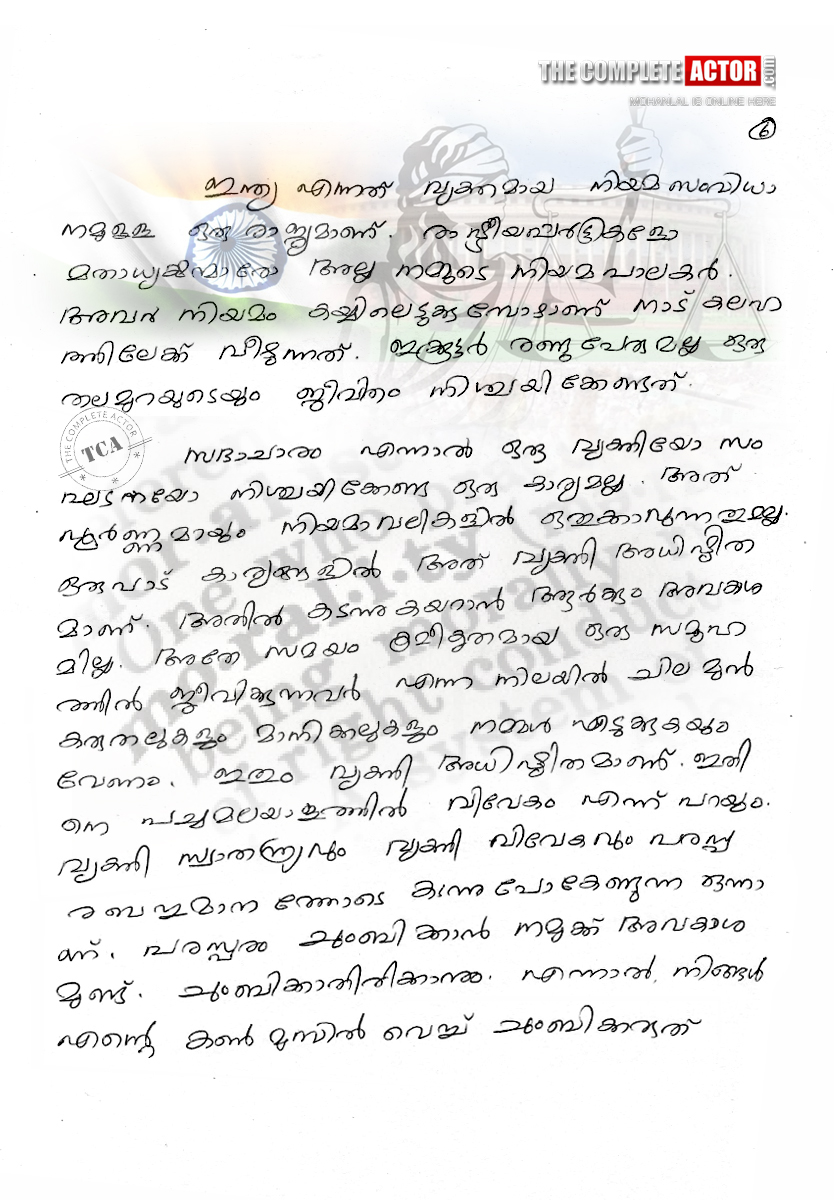 THE COMPLETE ACTOR .com
MOHANLAL IS ONLINE HERE
6
ഇന്ത്യ എന്നത് വ്യക്തമായ നിയമസംവിധാ
നമുള്ള ഒരു രാജ്യമാണ്. രാഷ്ട്രീയപാർട്ടികളോ
മതാധ്യക്ഷന്മാരോ അല്ല നമ്മുടെ നിയമപാലകർ.
അവർ നിയമം കയ്യിലെടുക്കുമ്പോഴാണ് നാട് കലഹ
ത്തിലേക്ക് വീഴുന്നത്. ഇക്കൂട്ടർ രണ്ടുപേരുമല്ല ഒരു
തലമുറയുടെയും ജീവിതം നിശ്ചയിക്കേണ്ടത്.
THE COMPLETE ACTOR
TCA
സദാചാരം എന്നാൽ ഒരു വ്യക്തിയോ സം
ഘടനയോ നിശ്ചയിക്കേണ്ട ഒരു കാര്യമല്ല. അത്
പൂർണ്ണമായും നിയമാവലികളിൽ ഒതുക്കാവുന്നതുമല്ല.
ഒരുപാട് കാര്യങ്ങളിൽ അത് വ്യക്തി അധിഷ്ഠിത
മാണ്. അതിൽ കടന്നുകയറാൻ ആർക്കും അവകാശ
മില്ല. അതേ സമയം ക്രമീകൃതമായ ഒരു സമൂഹ
ത്തിൽ ജീവിക്കുന്നവർ എന്ന നിലയിൽ ചില മുൻ
കരുതലുകളും മാനിക്കലുകളും നമ്മൾ എടുക്കുകയും
വേണം. ഇതും വ്യക്തി അധിഷ്ഠിതമാണ്. ഇതി
നെ പച്ചമലയാളത്തിൽ വിവേകം എന്ന് പറയും.
വ്യക്തി സ്വാതന്ത്ര്യവും വ്യക്തി വിവേകവും പരസ്പ
രബഹുമാനത്തോടെ കടന്നുപോകേണ്ടുന്ന ഒന്നാ
ണ്. പരസ്പരം ചുംബിക്കാൻ നമുക്ക് അവകാശ
മുണ്ട്. ചുംബിക്കാതിരിക്കാനും. എന്നാൽ, നിങ്ങൾ
എന്റെ കൺമുമ്പിൽ വെച്ച് ചുംബിക്കരുത്